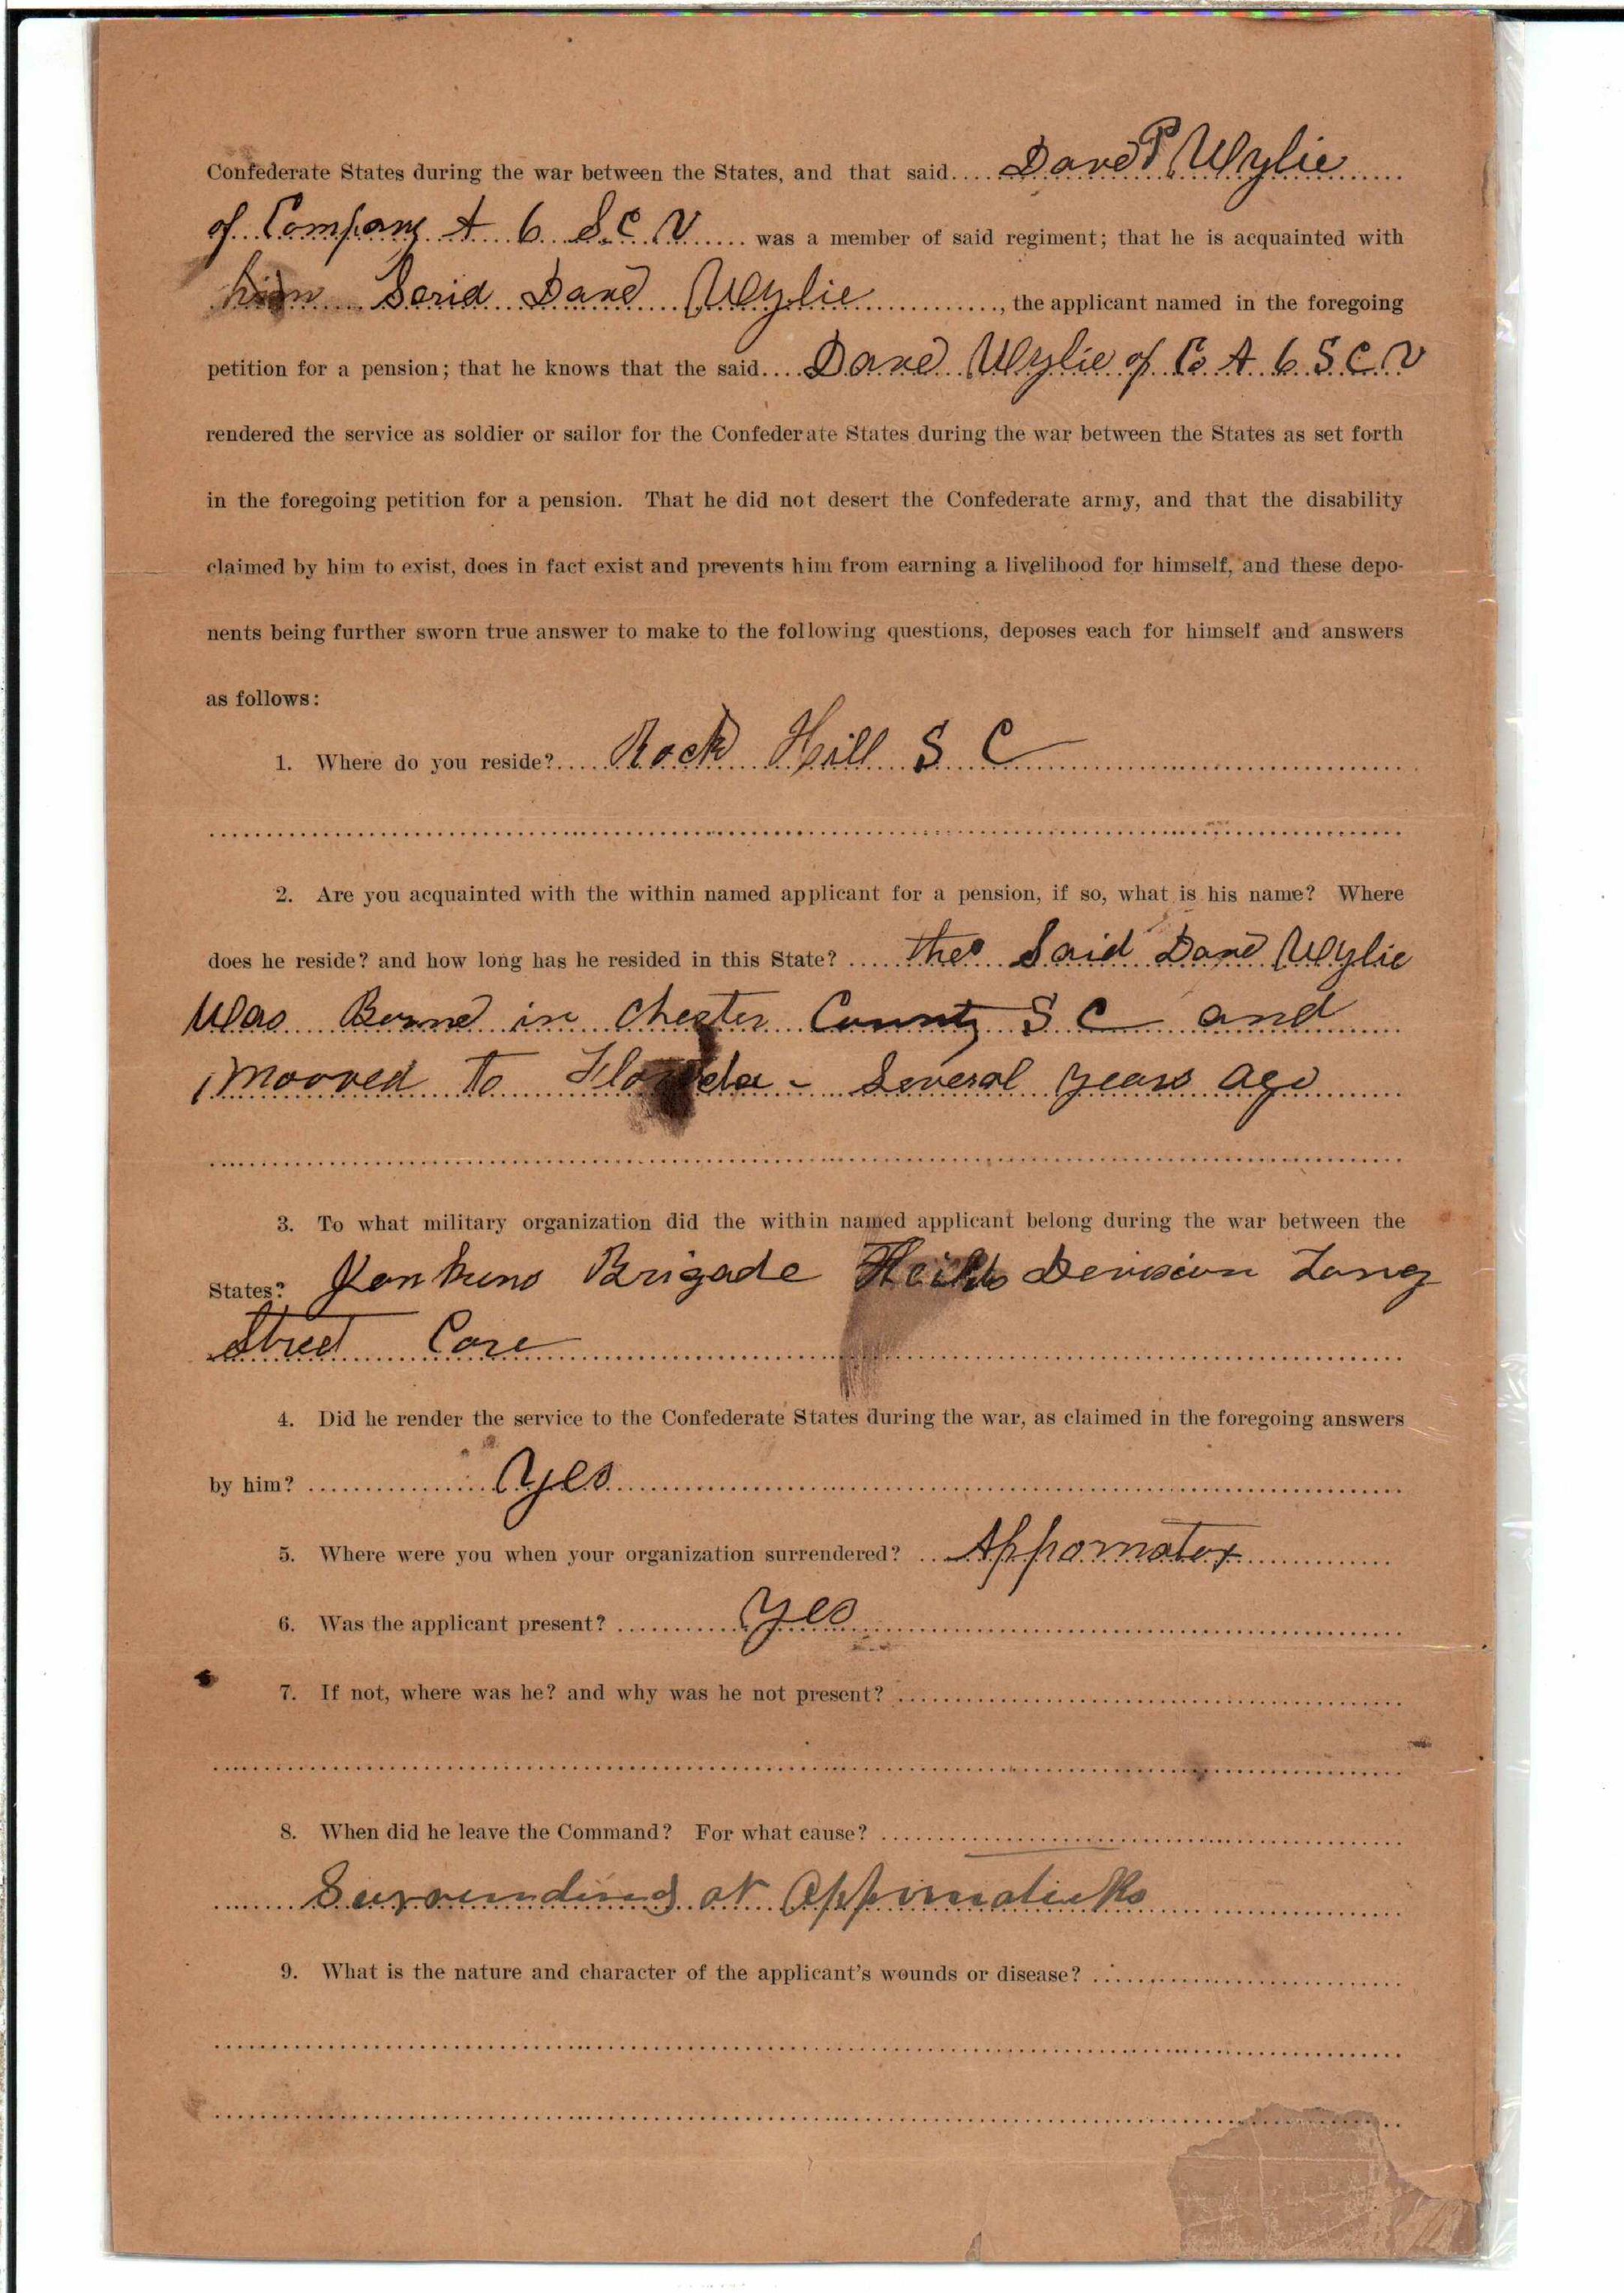 Confederate States during the war between the States, and that said.... Dave P Wylie
of Company A 6 S.C.V. was a member of said regiment; that he is acquainted with
him Serid Dave Wylie, the applicant named in the foregoing
petition for a pension; that he knows that the said.... Dave Wylie of Co A 6 S.C.V
rendered the service as soldier or sailor for the Confederate States during the war between the States as set forth
in the foregoing petition for a pension. That he did not desert the Confederate army, and that the disability
claimed by him to exist, does in fact exist and prevents him from earning a livelihood for himself, and these depo-
nents being further sworn true answer to make to the following questions, deposes each for himself and answers
as follows:
1. Where do you reside?.... Rock Hill S C
2. Are you acquainted with the within named applicant for a pension, if so, what is his name? Where
does he reside? and how long has he resided in this State? .... the Said Dave Wylie
Was Borne in Chester County S C and
mooved to Florida - Several years ago
3. To what military organization did the within named applicant belong during the war between the
States? Jenkins Brigade Devision Long
Street Core
4. Did he render the service to the Confederate States during the war, as claimed in the foregoing answers
by him? .... yes
5. Where were you when your organization surrendered? .. Appomatox
6. Was the applicant present? .... yes
7. If not, where was he? and why was he not present?
8. When did he leave the Command? For what cause?
at
9. What is the nature and character of the applicant's wounds or disease?